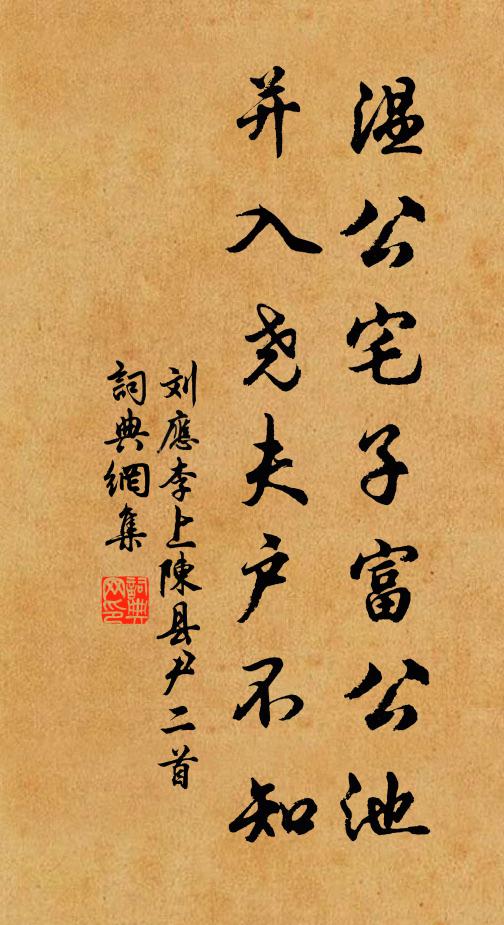 温公宅子富公池
并入尧夫户不知
刘應李上陳县尹二首
詞典網集
詞典网印